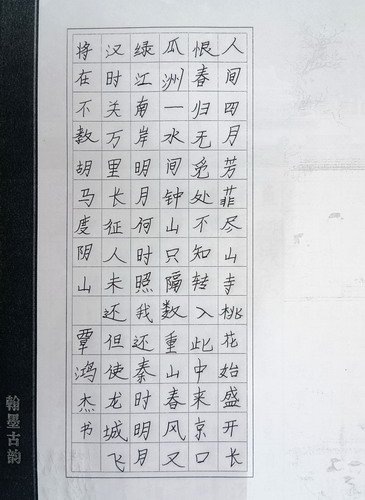 人间四月芳菲尽山寺桃花始盛开长
恨春归无觅处不知转入此中来京口
瓜洲一水间钟山只隔数重山春风又
绿江南岸明月何时照我还秦时明月
汉时关万里长征人未还但使龙城飞
将在不教胡马度阴山 覃鸿杰书
翰墨古韵